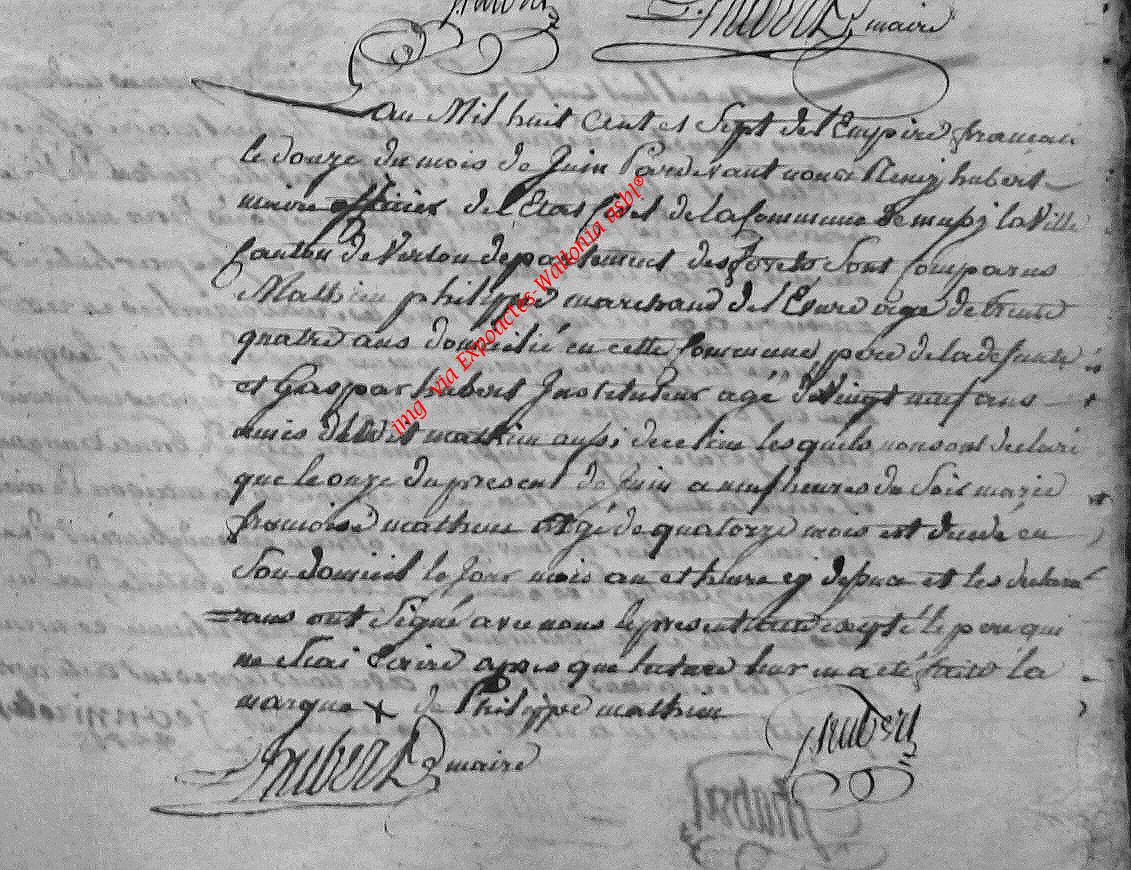 hubert
hubert maire
L'an Mil huit Cent et Sept de l'Empire francais
le douze du mois de Juin Pardevant nous Remij hubert
maire officier de l'Etat Civil de la Commune de mussj la Ville
Canton de Virton departement des forets Sont Comparus
Mathieu philippe marchand de age de trente
quatre ans domicilié en cette Commune pere de la defunte
et Gaspar hubert Instituteur agé de Vingt neuf ans
amis dudit mathieu aussi de ce lieu lesquels nous ont declaré
que le onze du present de Juin a neuf heures du Soir marie
francoise mathieu agé de quatorze mois est decedé en
Son domicil le jour mois an et heure cy dessus et les declara
rans ont Signé avec nous le present acte excepté le pere qui
ne Scai Ecrire apres que lecture leur en a eté faite la
marque + de Philippe mathieu
hubert
hubert maire
img via Expoactes-Wallonia asbl®